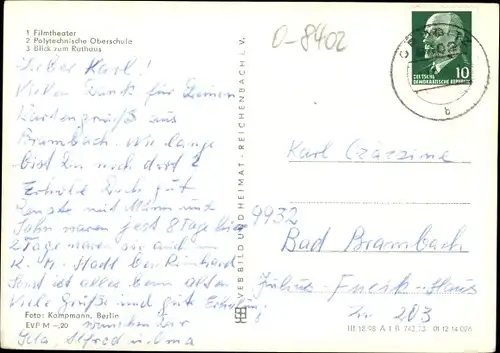 1 Filmtheater
2 Polytechnische Oberschule
3 Blick zum Rathaus
0-8402
DEUTSCHE
DEMOKRATISCHE REPUBLIK
10
b
Lieber Karl!
Vielen Dank für Deinen
Kartengruß aus
Brambach. Wie lange
bist Du noch dort?
Erhole Dich gut
mit Mann und
Sohn waren jetzt 8 Tage hier
2 Tage waren sie auch in
K.-M.-Stadt bei Reinhard
Sonst ist alles beim alten
Viele Grüße und gute
wünschen Dir
Alfred und Oma
VEB BILD UND HEIMAT · REICHENBACH i. V.
Karl
9932
Bad Brambach
Julius-Fucik-Haus
Zi. 203
Foto: Kampmann, Berlin
EVP M -,20
III/18/48 A 1 B
01 12 14 028